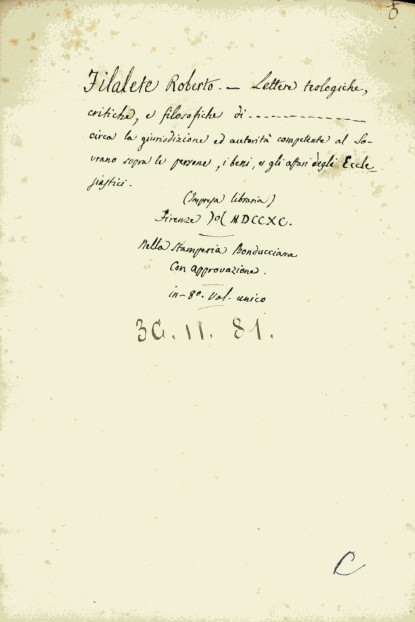 Filalete Roberto. — Lettere teologiche,
critiche, e filosofiche di - - - - - - - - - - - - - -
circa la giurisdizione ed autorità competente al So-
vrano sopra le persone, i beni, e gli affari degli Eccle-
siastici.
(Impresa libraria)
Firenze )o( MDCCXC.
Nella Stamperia Bonducciana
Con approvazione.
in-8º. Vol. unico
30. 11. 81.
C